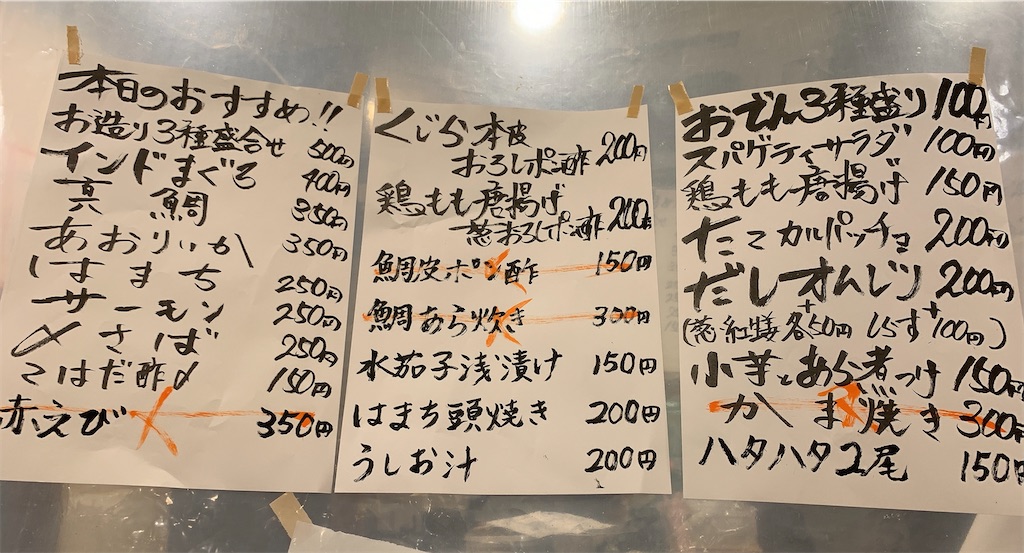 本日のおすすめ!!
お造り3種盛合せ 500円
インドまぐろ 400円
真鯛 350円
あおりいか 350円
はまち 250円
サーモン 250円
〆さば 250円
こはだ酢〆 150円
赤えび 350円
くじら本皮
おろしポン酢 200円
鶏もも唐揚げ
葱おろしポン酢 200円
鯛皮ポン酢 150円
鯛あら炊き 300円
水茄子浅漬け 150円
はまち頭焼き 200円
うしお汁 200円
おでん3種盛り 100円
スパゲティサラダ 100円
鶏もも唐揚げ 150円
たこカルパッチョ 200円
だしオムレツ 200円
(葱 紅 各+50円 しらす+100円)
小芋とあら煮つけ 150円
かま焼き 300円
ハタハタ2尾 150円